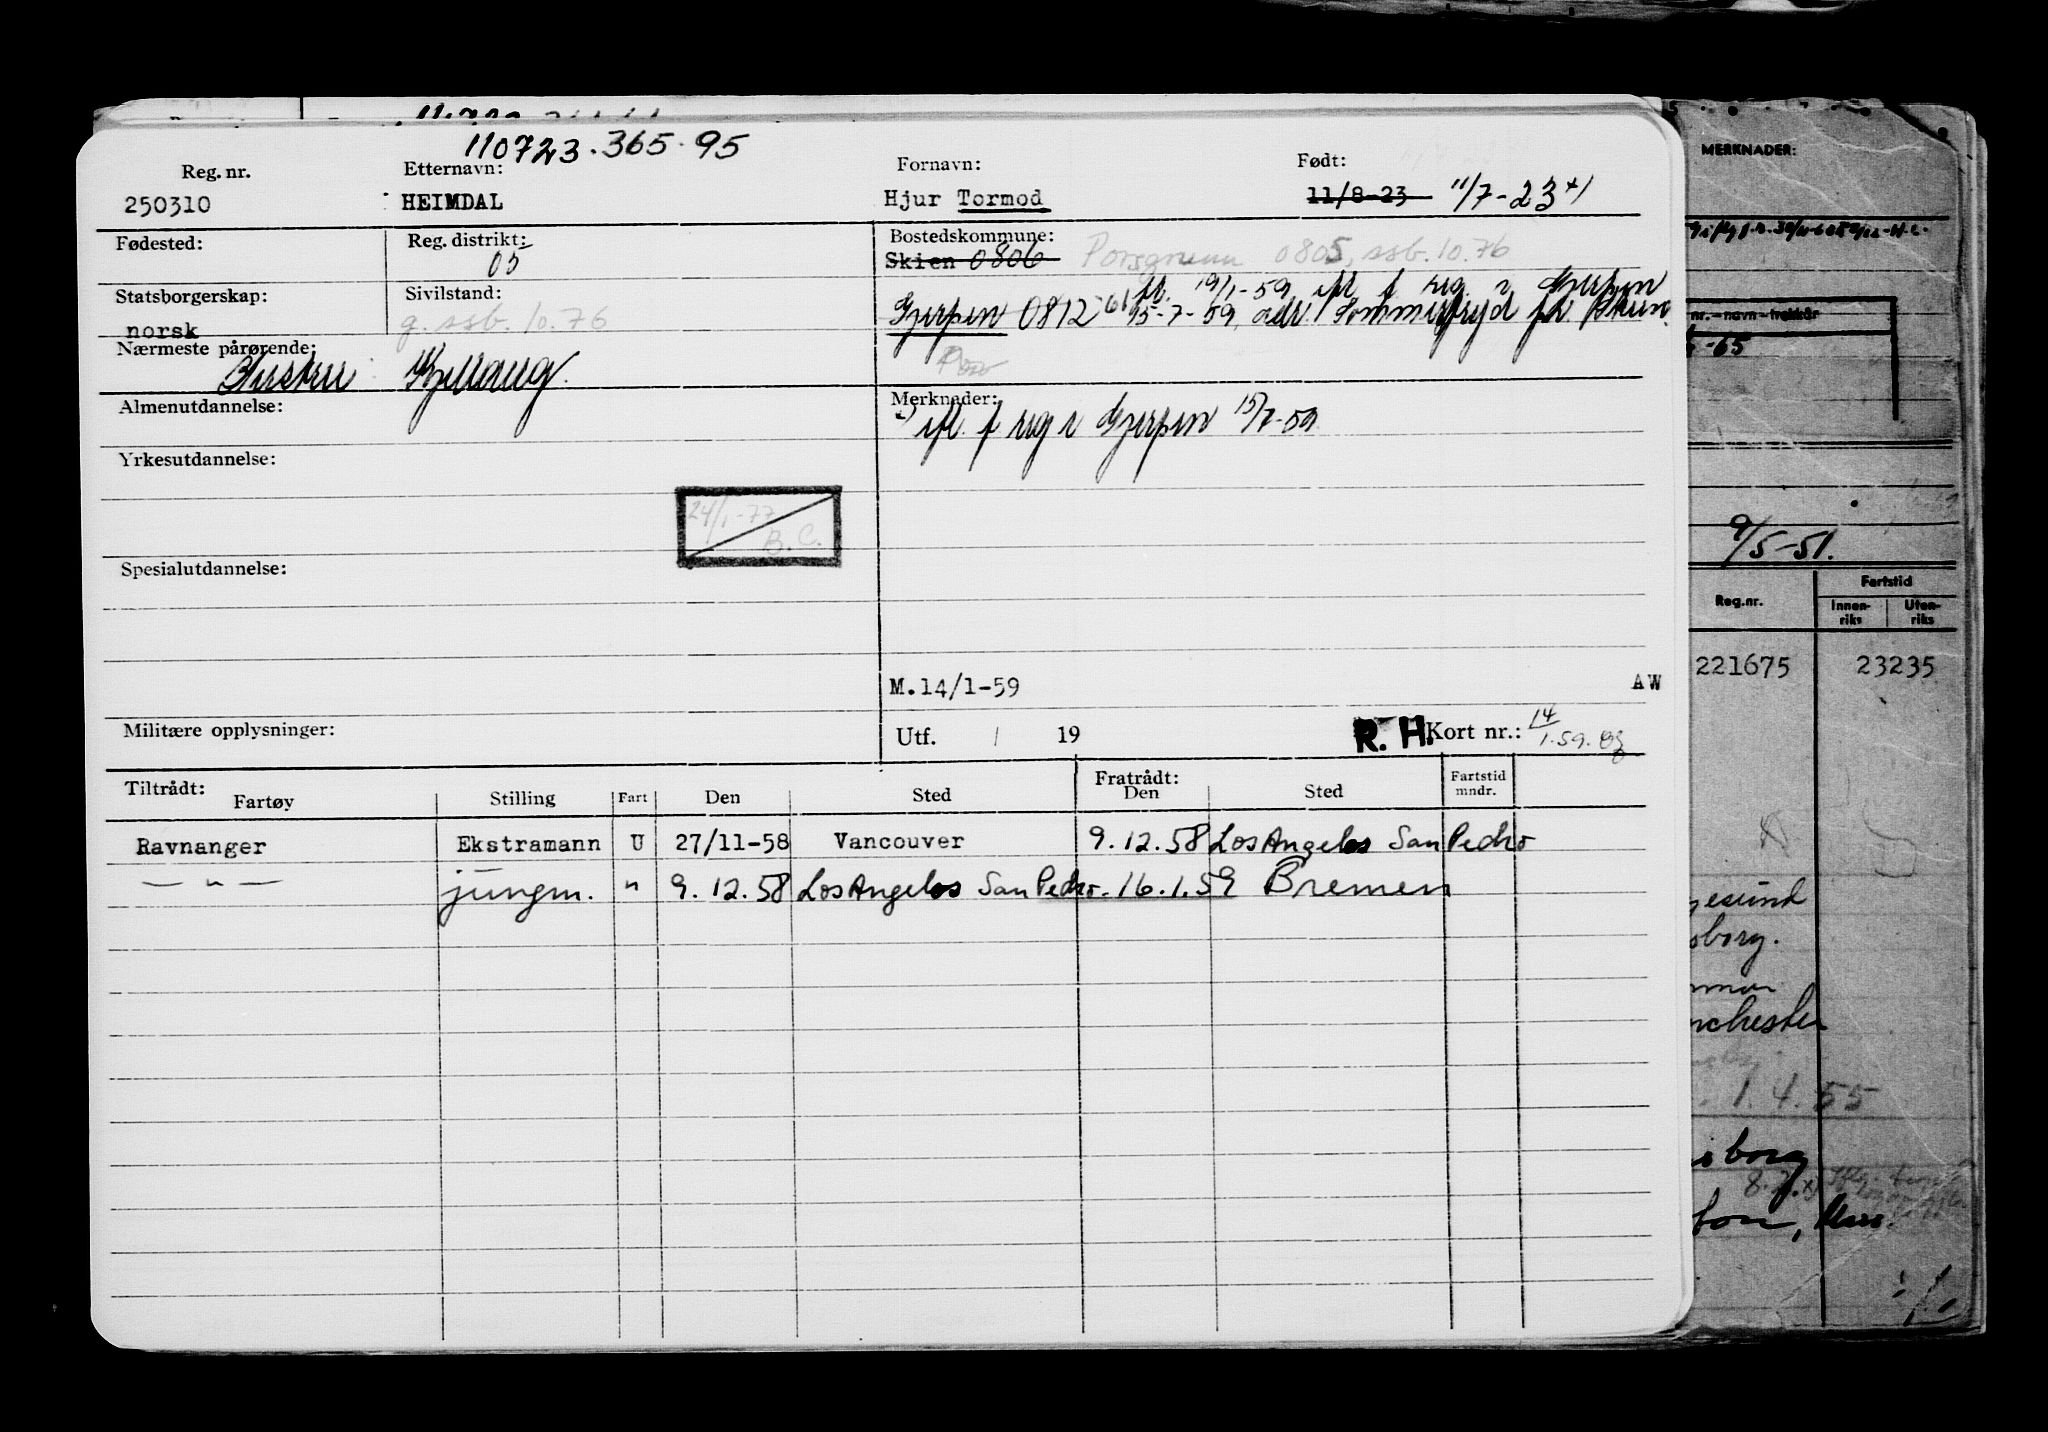 110723.365.95
Reg. nr. Etternavn: Fornavn: Født:
250310 HEIMDAL Hjur Tormod 11/8-23 11/7-23 x)
Fødested: Reg. distrikt: Bostedskommune:
05 Skien 0806 Porsgrunn 0805, ssb. 10.76
Statsborgerskap: Sivilstand: 19/1-59 ifl. f reg. i Gjerpen
norsk g. ssb. 10.76 Gjerpen 0812 15-7-59, adr.
Nærmeste pårørende:
Almenutdannelse: Merknader:
x) ifl. f reg i Gjerpen 15/7-59
Yrkesutdannelse:
24/1-77
B.C.
Spesialutdannelse:
M.14/1-59 AW
Militære opplysninger: Utf. / 19 R. H. Kort nr.: 14/1.59.
Tiltrådt: Fratrådt: Fartstid
Fartøy Stilling Fart Den Sted Den Sted mndr.
Ravnanger Ekstramann U 27/11-58 Vancouver 9.12.58 Los Angelos San Pedro
— " — jungm. " 9.12.58 Los Angelos San Pedro. 16.1.59 Bremen
MERKNADER:
nr.–navn–trekkår
-65
9/5-51.
Fartstid
Reg.nr. Innen-riks Uten-riks
221675 23235
1.4.55